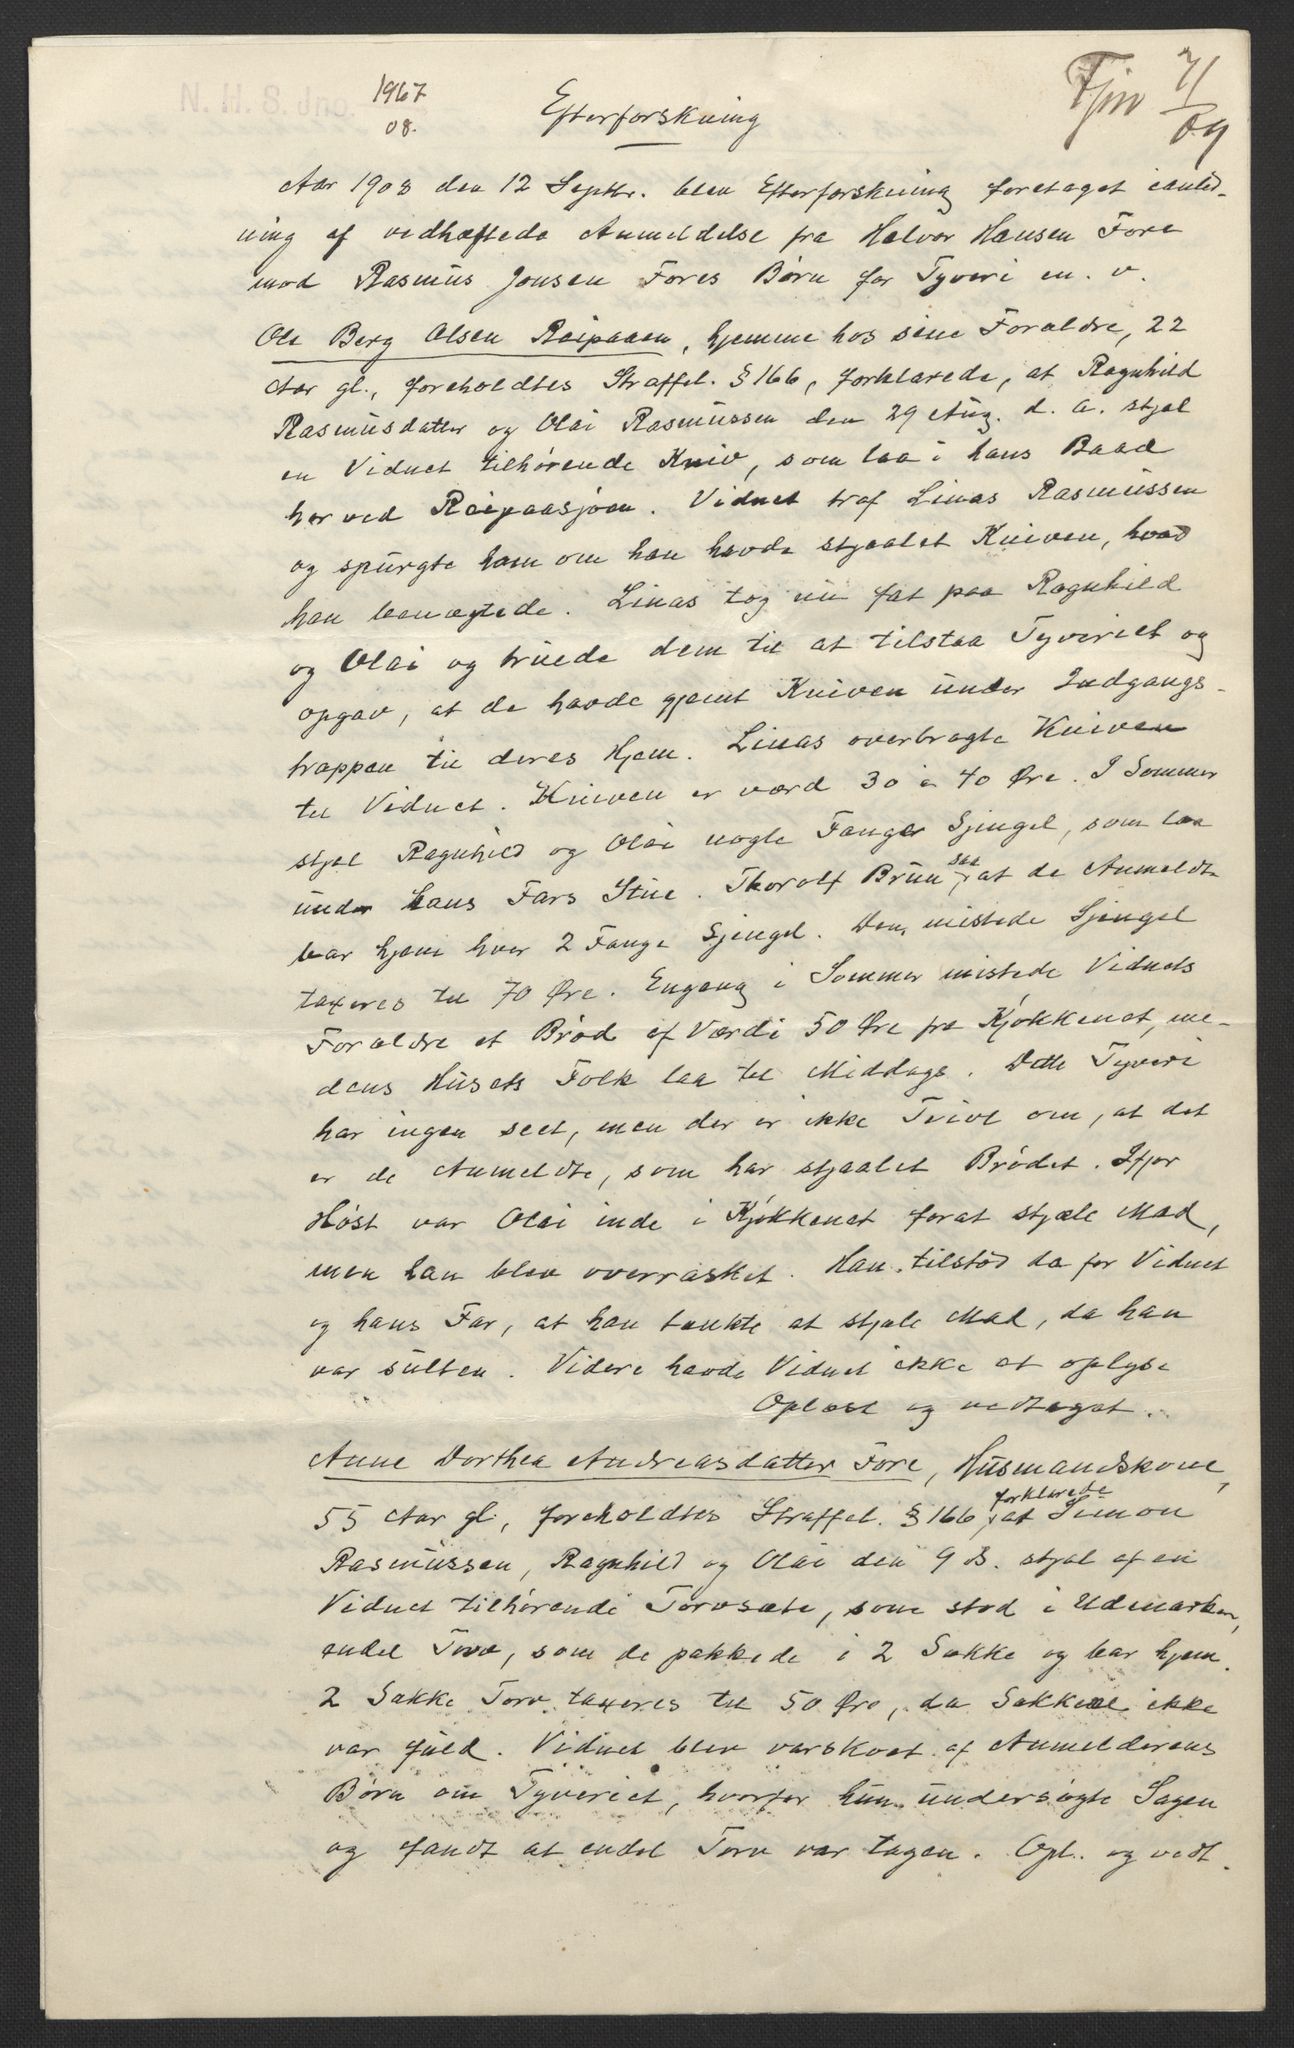 N. H. S. Jno. 1967
08.
Fjm 7/
09
Efterforskning
Aar 1908 den 12 Septbr. blev Efterforskning foretaget ianled-
ning af vedhæftede Anmeldelse fra Halvor Hansen Fore
mod Rasmus Jonsen Fores Børn for Tyveri m. v.
Ole Berg Olsen Reipaaen, hjemme hos sine Forældre, 22
Aar gl., foreholdtes Straffel. § 166, forklarede, at Ragnhild
Rasmusdatter og Olai Rasmussen den 29 Aug. d. A. stjal
en Vidnet tilhørende Kniv, som laa i hans Baad
her ved Reipaasjøen. Vidnet traf Linas Rasmussen
og spurgte ham om han havde stjaalet Kniven, hvad
han benægtede. Linas tog nu fat paa Ragnhild
og Olai og truede dem til at tilstaa Tyveriet og
opgav, at de havde gjemt Kniven under Indgangs-
trappen til deres Hjem. Linas overbragte Kniven
til Vidnet. Kniven er værd 30 à 40 Øre. I Sommer
stjal Ragnhild og Olai nogle Fanger Sjingel, som laa
under hans Fars Stue. Thorolf Bruun saa, at de Anmeldte
bar hjem hver 2 Fange Sjingel. Den mistede Sjingel
taxeres til 70 Øre. Engang i Sommer mistede Vidnets
Forældre et Brød af Værdi 50 Øre fra Kjøkkenet, me-
dens Husets Folk laa til Middags. Dette Tyveri
har ingen seet, men der er ikke Tvivl om, at det
er de Anmeldte, som har stjaalet Brødet. Ifjor
Høst var Olai inde i Kjøkkenet forat stjæle Mad,
men han blev overrasket. Han tilstod da for Vidnet
og hans Far, at han tænkte at stjæle Mad, da han
var sulten. Videre havde Vidnet ikke at oplyse
Oplæst og vedtaget.
Anne Dorthea Andreasdatter Fore, Husmandskone,
55 Aar gl, foreholdtes Straffel. § 166, forklarede at Simon
Rasmussen, Ragnhild og Olai den 9 ds. stjal af en
Vidnet tilhørende Torvsæte, som stod i Udmarken,
endel Torv, som de pakkede i 2 Sække og bar hjem.
2 Sække Torv taxeres til 50 Øre, da Sækkene ikke
var fuld. Vidnet blev varskoet af Anmelderens
Børn om Tyveriet, hvorfor hun undersøgte Sagen
og fandt at endel Torv var tagen. Opl. og vedt.